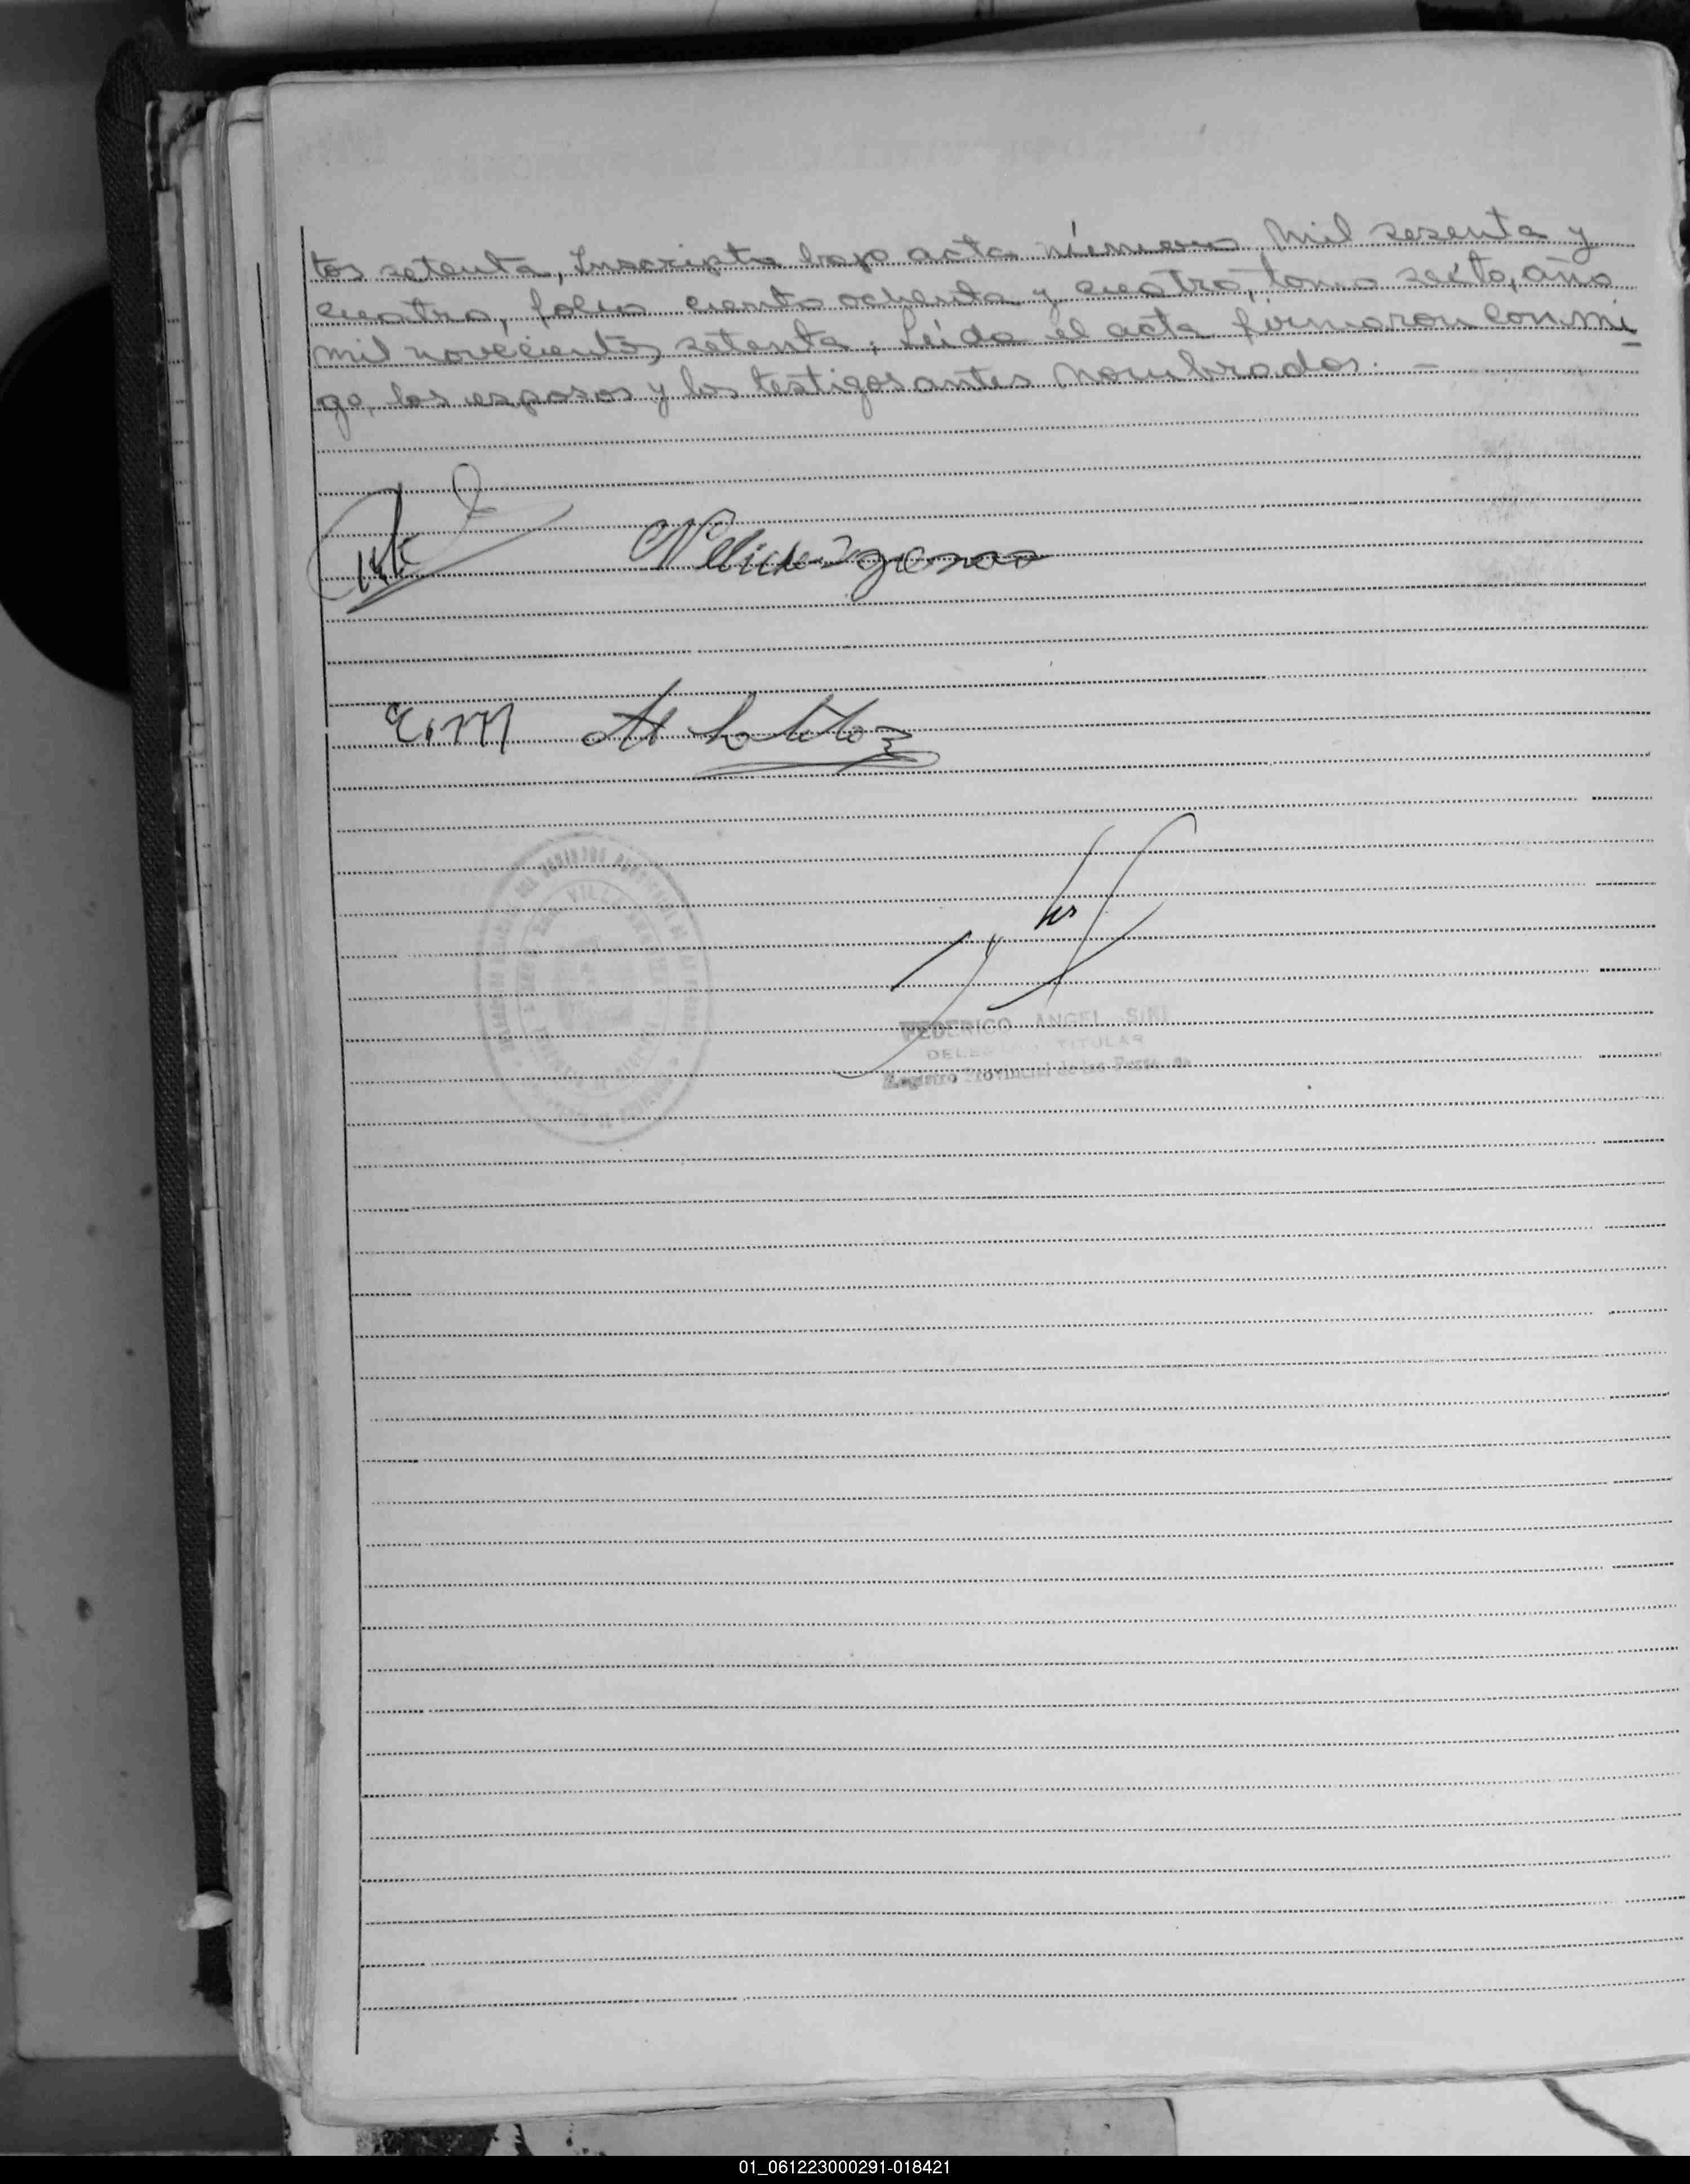 tos setenta, Inscripta bajo acta número mil sesenta y
cuatro, folio ciento ochenta y cuatro, tomo sexto, año
mil novecientos setenta; Leída el acta firmaron conmi
go, los esposos y los testigos antes nombrados. —
Nelida
FEDERICO ANGEL SIRI
DELEGADO TITULAR
Registro Provincial de las Personas
01_061223000291-018421